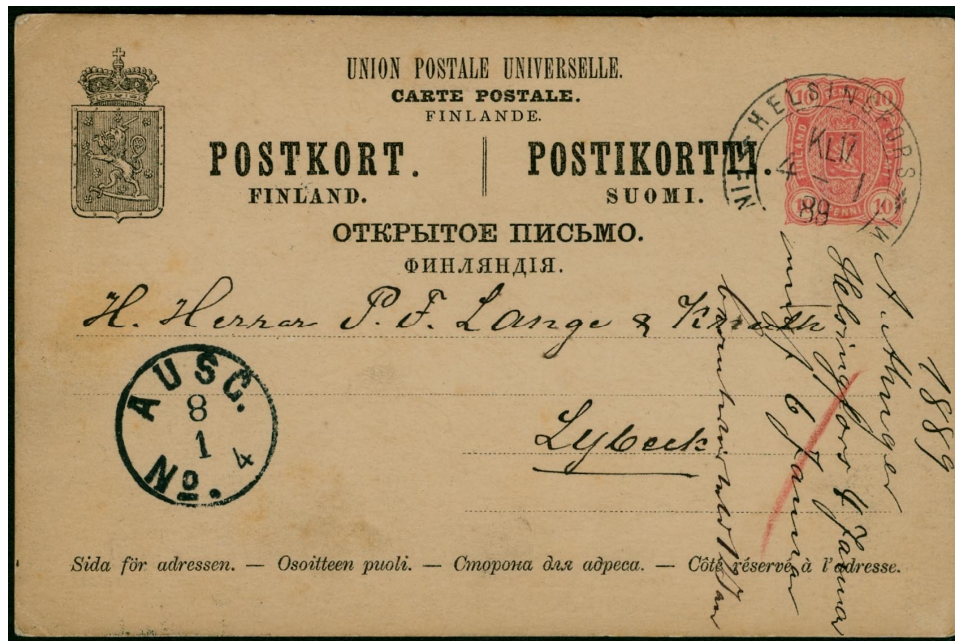 UNION POSTALE UNIVERSELLE.
CARTE POSTALE.
FINLANDE.
POSTKORT. POSTIKORTTI.
FINLAND. SUOMI.
ОТКРЫТОЕ ПИСЬМО.
ФИНЛЯНДІЯ.
10 10
10 PENNI 10
HELSINGFORS
KL 17
4 1
89
H. Herren P. F. Lange &
Lybeck
AUSG.
8
1
No. 4
1889
Helsingfors 4 Januar
6 Januar
Sida för adressen. — Osoitteen puoli. — Сторона для адреса. — Côté réservé à l'adresse.